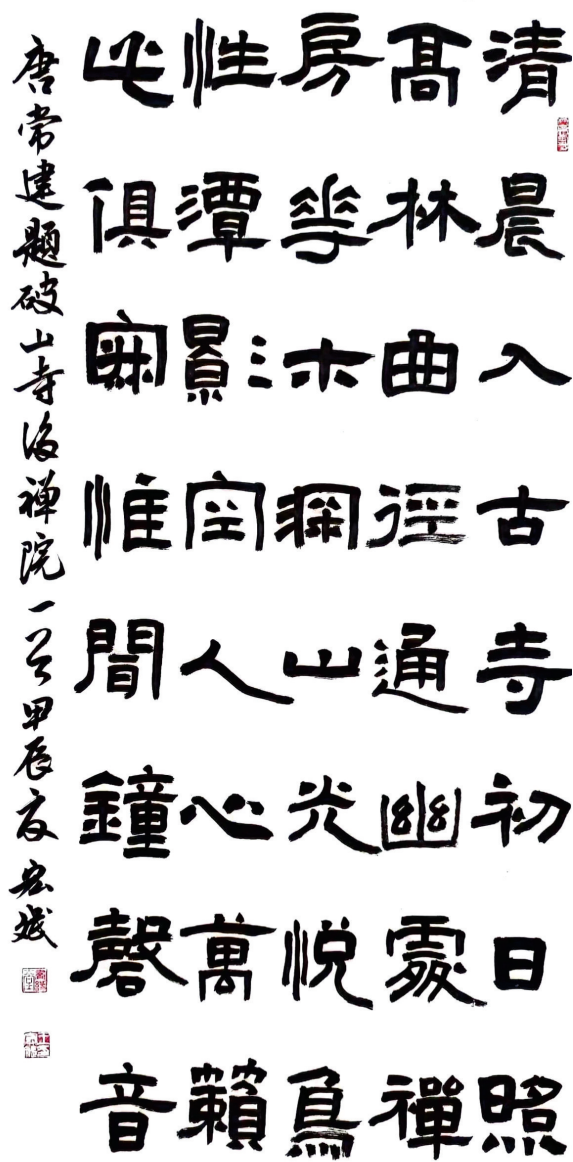 清晨入古寺初日照
髙林曲徑通幽處禪
房花木深山光悅鳥
性潭影空人心萬籟
此俱寂惟聞鐘磬音
唐常建題破山寺後禪院一首甲辰夏宏斌